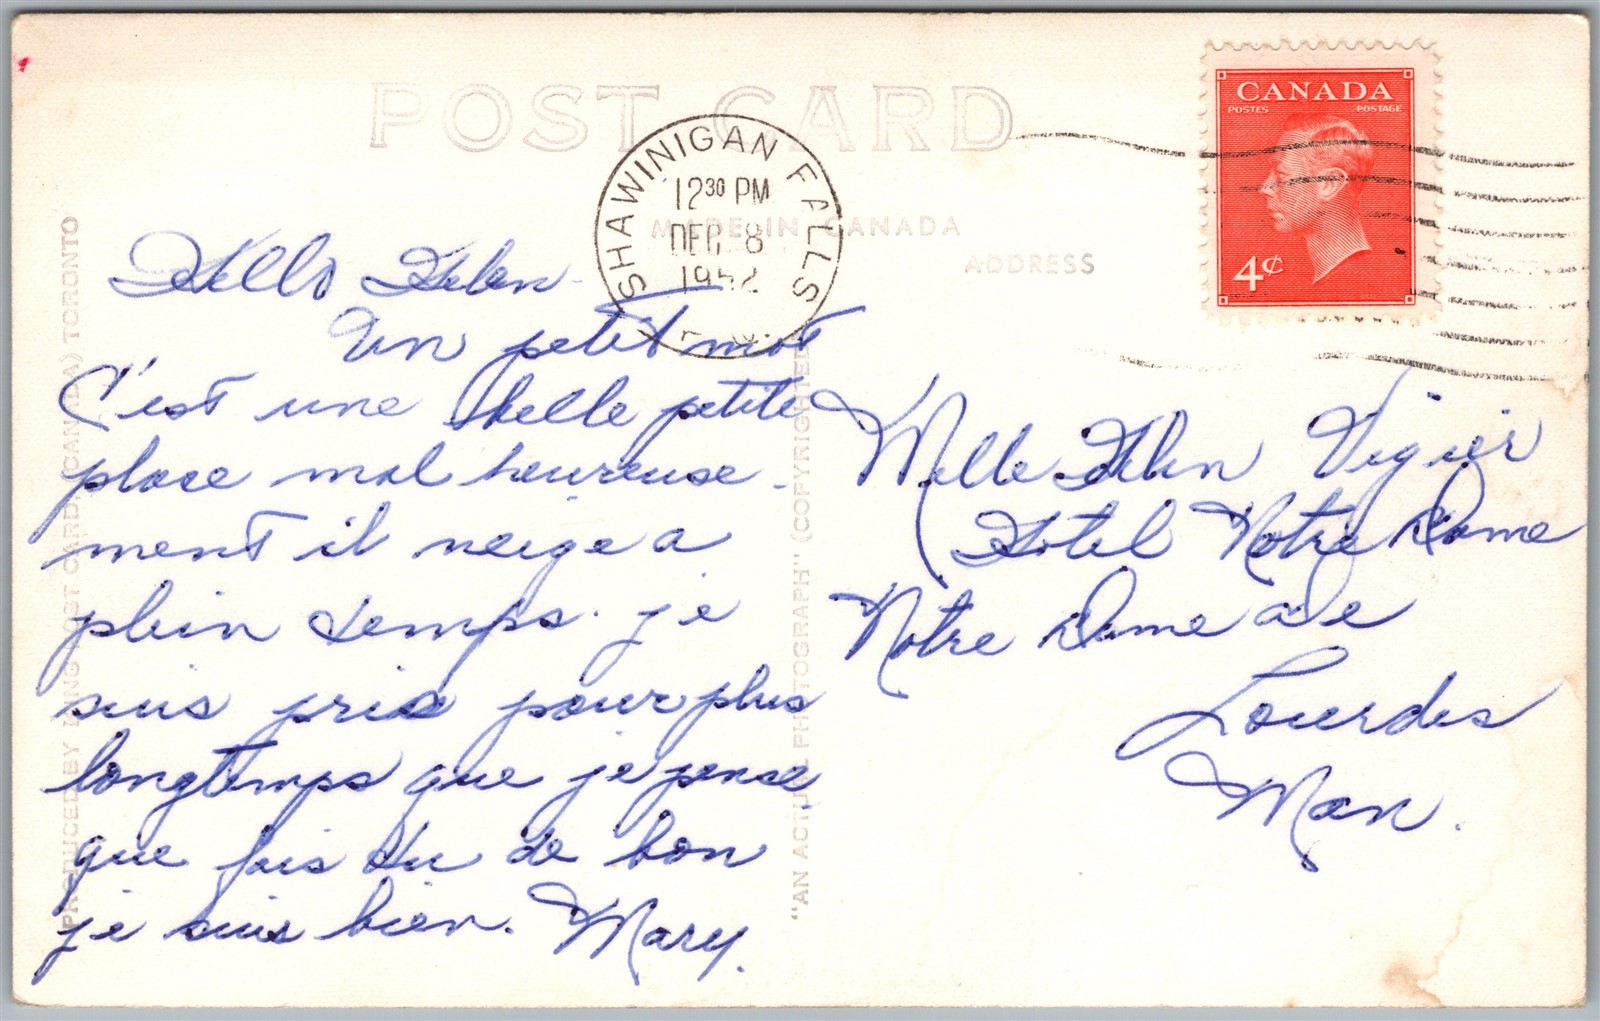 POST CARD
SHAWINIGAN FALLS
12 30 PM
DEC 8
1952
MADE IN CANADA
ADDRESS
CANADA
POSTES POSTAGE
4¢
Hello Helen
Un petit mot
C'est une belle petite
place malheureuse-
ment il neige a
plein temps. je
suis pris pour plus
longtemps que je pense
que fais tu de bon
je suis bien. Mary.
Melle Helen Vigier
Hotel Notre Dame
Notre Dame de
Lourdes
Man.
PRODUCED BY KING POST CARD, (CANADA) TORONTO
"AN ACTUAL PHOTOGRAPH" (COPYRIGHTED)